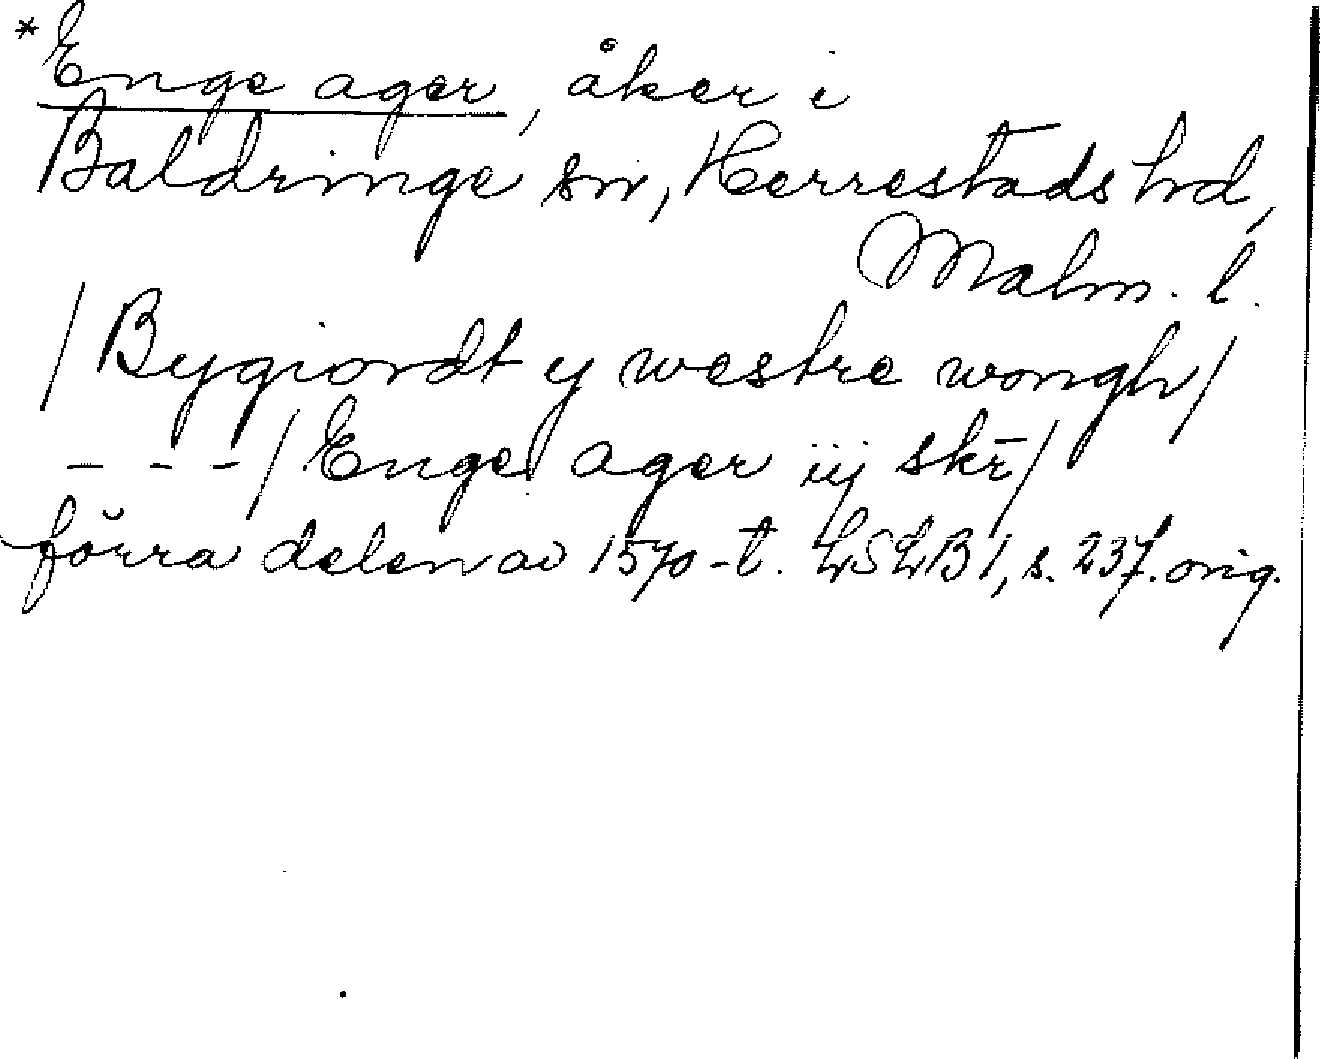 *Enge ager, åker i
Baldringe sn, Herrestads hd,
Malm. l.
/Bygiordt y westre wongh/
- - -/Enge ager iij skr̄/
förra delen av 1570-t. LSLB1, s. 237. orig.